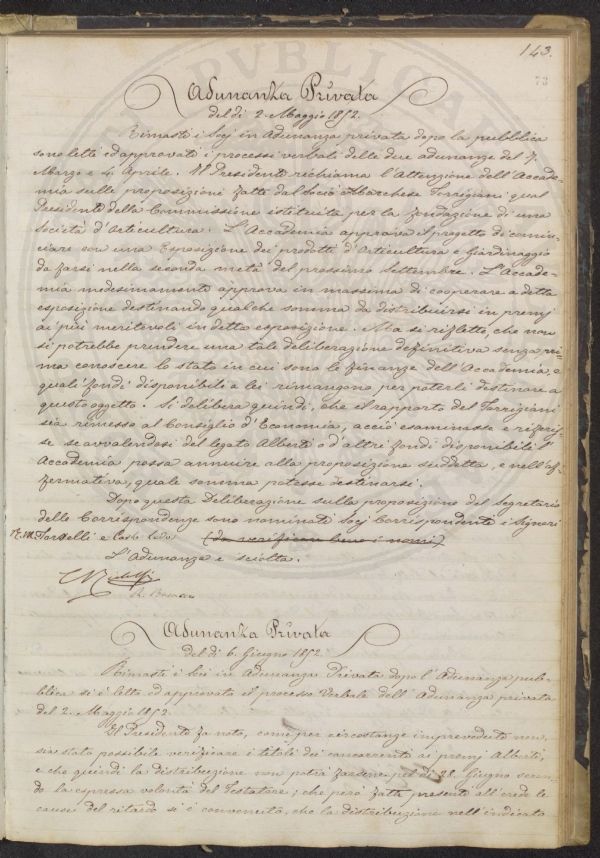 143.
73
Adunanza Privata
del dì 2. Maggio 1852.
Rimasti i Socj in Adunanza privata dopo la pubblica
sono letti ed approvati i processi verbali delle due adunanze del 7.
Marzo e 4. Aprile. Il Presidente richiama l'Attenzione dell'Accade-
mia sulle proposizioni fatte dal Socio Marchese Torrigiani qual
Presidente della Commissione istituita per la fondazione di una
Società d'Orticultura. L'Accademia approva il progetto di comin-
ciare con una Esposizione dei prodotti d'Orticultura e Giardinaggio
da farsi nella seconda metà del prossimo Settembre. L'Accade-
mia medesimamente approva in massima di cooperare a detta
esposizione destinando qualche somma da distribuirsi in premj
ai più meritevoli in detta esposizione. Ma si riflette, che non
si potrebbe prendere una tale deliberazione definitiva senza pri-
ma conoscere lo stato in cui sono le finanze dell'Accademia, e
quali fondi disponibili a lei rimangono per poterli destinare a
questo oggetto. Si delibera quindi, che il rapporto del Torrigiani
sia rimesso al Consiglio d'Economia, acciò esaminasse e riferis-
se se avvalendosi del legato Alberti o d'altri fondi disponibili l'
Accademia possa annuire alla proposizione suddetta, e nell'af-
fermativa, quale somma potesse destinarsi.
Dopo questa Deliberazione sulla proposizione del Segretario
delle Corrispondenze sono nominati Socj Corrispondenti i Signori
e Carlo (da verificare bene i nomi)
L'Adunanza è sciolta.
Adunanza Privata
del dì 6. Giugno 1852.
Rimasti i Soci in Adunanza Privata dopo l'Adunanza pub-
blica si è letto ed approvato il processo Verbale dell'Adunanza privata
del 2. Maggio 1852.
Il Presidente fa noto, come per circostanze imprevedute non
sia stato possibile verificare i titoli dei concorrenti ai premj Alberti,
e che quindi la distribuzione non potrà farsene pel dì 28. Giugno secon-
do la espressa volontà del Testatore; che però fatte presenti all'erede le
cause del ritardo si è convenuto, che la distribuzione nell'indicato